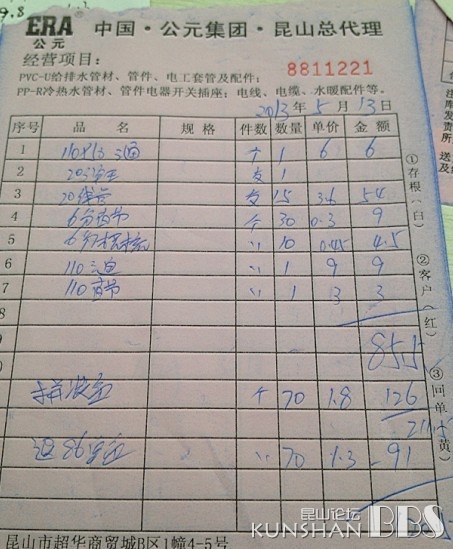 9.8
ERA 公元 中国·公元集团·昆山总代理
经营项目: 8811221
PVC-U给排水管材、管件、电工套管及配件;
PP-R冷热水管材、管件电器开关插座;电线、电缆、水暖配件等。
2013年5月13日
序号 品名 规格 件数 数量 单价 金额
1 三通 个 1 6 6
2 支 1
3 20线管 支 15 3.6 54
4 个 30 0.3 9
5 〃 10 0.45 4.5
6 110 〃 1 9 9
7 110 〃 1 3 3
8
85.5
个 70 1.8 126
211.5
退86 〃 70 1.3 -91
①存根(白)
②客户(红)
③回单(黄)
昆山市超华商贸城B区1幢4-5号
昆山论坛
KUNSHAN BBS